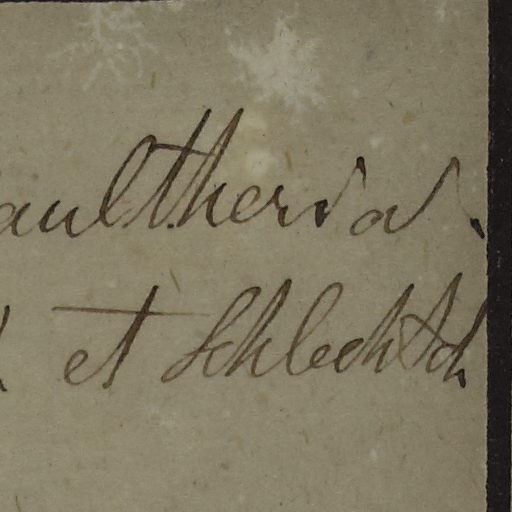 aultheria.
et Schlechtd